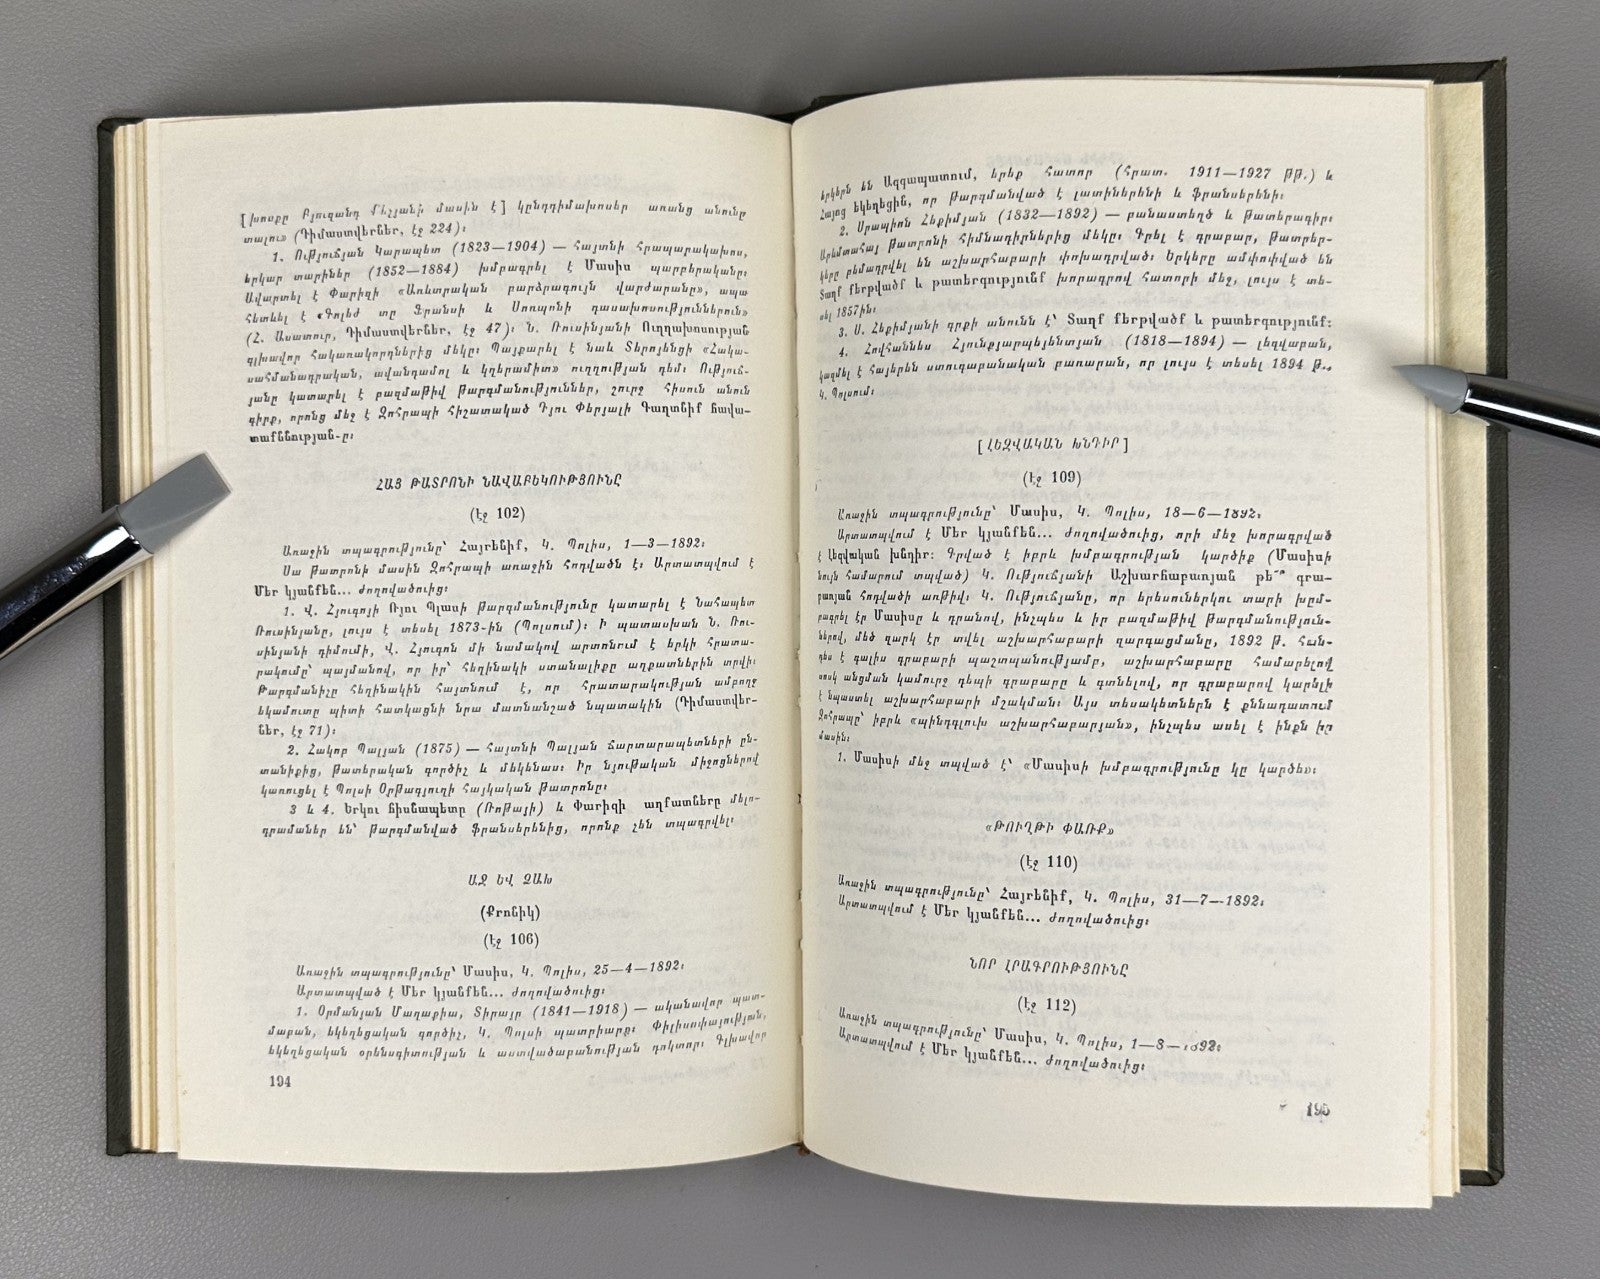 [խոսքը Բյուզանդ Քեչյանի մասին է] կընդդիմախոսեր առանց անունը
տալու» (Դիմաստվերներ, էջ 224)։
1. Ություճյան Կարապետ (1823—1904) — հայտնի հրապարակախոս,
երկար տարիներ (1852—1884) խմբագրել է Մասիս պարբերականը։
Ավարտել է Փարիզի «Առևտրական բարձրագույն վարժարանը», ապա
հետևել է «Գոլեժ տը Ֆրանսի և Սոռպոնի դասախոսություններուն»
(Հ. Ասատուր, Դիմաստվերներ, էջ 47)։ Ն. Ռուսինյանի Ուղղախոսության
գլխավոր հակառակորդներից մեկը։ Պայքարել է նաև Տերոյենցի «հակա-
սահմանադրական, ավանդամոլ և կղերամիտ» ուղղության դեմ։ Ություճ-
յանը կատարել է բազմաթիվ թարգմանություններ, շուրջ հիսուն անուն
գիրք, որոնց մեջ է Զոհրապի հիշատակած Դյու Փերյալի Գաղտնիք ճավա-
տամքնության-ը։
ՀԱՅ ԹԱՏՐՈՆԻ ՆԱՎԱԲԵԿՈՒԹՅՈՒՆԸ
(էջ 102)
Առաջին տպագրությունը՝ Հայրենիք, Կ. Պոլիս, 1—3—1892։
Սա թատրոնի մասին Զոհրապի առաջին հոդվածն է։ Արտատպվում է
Մեր կյանքեն... ժողովածուից։
1. Վ. Հյուգոյի Ռյու Պլասի թարգմանությունը կատարել է Նահապետ
Ռուսինյանը, լույս է տեսել 1873-ին (Պոլսում)։ Ի պատասխան Ն. Ռու-
սինյանի դիմումի, Վ. Հյուգոն մի նամակով արտոնում է երկի հրատա-
րակումը՝ պայմանով, որ իր՝ հեղինակի ստանալիքը աղքատներին տրվի։
Թարգմանիչը հեղինակին հայտնում է, որ հրատարակության ամբողջ
եկամուտը պիտի հատկացնի նրա մատնանշած նպատակին (Դիմաստվեր-
ներ, էջ 71)։
2. Հակոբ Պալյան (1875) — հայտնի Պալյան ճարտարապետների ըն-
տանիքից, թատերական գործիչ և մեկենաս։ Իր նյութական միջոցներով
կառուցել է Պոլսի Օրթագյուղի հայկական թատրոնը։
3 և 4. Երկու հիսնապետը (Ռոթայի) և Փարիզի աղքատները մելո-
դրամաներ են՝ թարգմանված ֆրանսերենից, որոնք չեն տպագրվել։
ԱՋ ԵՎ ՁԱԽ
(Քրոնիկ)
(էջ 106)
Առաջին տպագրությունը՝ Մասիս, Կ. Պոլիս, 25—4—1892։
Արտատպված է Մեր կյանքեն... ժողովածուից։
1. Օրմանյան Մաղաքիա, Տիրայր (1841—1918) — ականավոր պատ-
մաբան, եկեղեցական գործիչ, Կ. Պոլսի պատրիարք։ Փիլիսոփայության,
եկեղեցական օրենսգիտության և աստվածաբանության դոկտոր։ Գլխավոր
194
երկերն են Ազգապատում, երեք հատոր (հրատ. 1911—1927 թթ.) և
Հայոց եկեղեցին, որ թարգմանված է լատիներենի և ֆրանսերենի։
2. Սրապիոն Հեքիմյան (1832—1892) — բանաստեղծ և թատերագիր։
Արևմտահայ թատրոնի հիմնադիրներից մեկը։ Գրել է գրաբար, թատրեր-
կերը բեմադրվել են աշխարհաբարի փոխադրված։ Երկերը ամփոփված են
Տաղք քերթվածք և թատերգությունք խորագրով հատորի մեջ, լույս է տե-
սել 1857ին։
3. Ս. Հեքիմյանի գրքի անունն է՝ Տաղք քերթվածք և թատերգությունք։
4. Հովհաննես Հյունքյարպեյենտյան (1818—1894) — լեզվաբան,
կազմել է հայերեն ստուգաբանական բառարան, որ լույս է տեսել 1894 թ.,
Կ. Պոլսում։
[ՀԵԶՎԱԿԱՆ ԽՆԴԻՐ]
(էջ 109)
Առաջին տպագրությունը՝ Մասիս, Կ. Պոլիս, 18—6—1892։
Արտատպվում է Մեր կյանքեն... ժողովածուից, որի մեջ խորագրված
է Լեզվական խնդիր։ Գրված է իբրև խմբագրության կարծիք (Մասիսի
նույն համարում տպված) Կ. Ություճյանի Աշխարհաբառյան թե՞ գրա-
բառյան հոդվածի առթիվ։ Կ. Ություճյանը, որ երեսուներկու տարի խըմ-
բագրել էր Մասիսը և դրանով, ինչպես և իր բազմաթիվ թարգմանություն-
ներով, մեծ զարկ էր տվել աշխարհաբարի զարգացմանը, 1892 թ. հան-
դես է գալիս գրաբարի պաշտպանությամբ, աշխարհաբարը համարելով
սոսկ անցման կամուրջ դեպի գրաբարը և գտնելով, որ գրաբարով կարելի
է նպաստել աշխարհաբարի մշակման։ Այս տեսակետներն է քննադատում
Զոհրապը՝ իբրև «պինդգլուխ աշխարհաբարյան», ինչպես ասել է ինքն իր
մասին։
1. Մասիսի մեջ տպված է՝ «Մասիսի խմբագրությունը կը կարծե»։
«ԹՈՒՂԹԻ ՓԱՌՔ»
(էջ 110)
Առաջին տպագրությունը՝ Հայրենիք, Կ. Պոլիս, 31—7—1892։
Արտատպվում է Մեր կյանքեն... ժողովածուից։
ՆՈՐ ԼՐԱԳՐՈՒԹՅՈՒՆԸ
(էջ 112)
Առաջին տպագրությունը՝ Մասիս, Կ. Պոլիս, 1—8—1892։
Արտատպվում է Մեր կյանքեն... ժողովածուից։
195